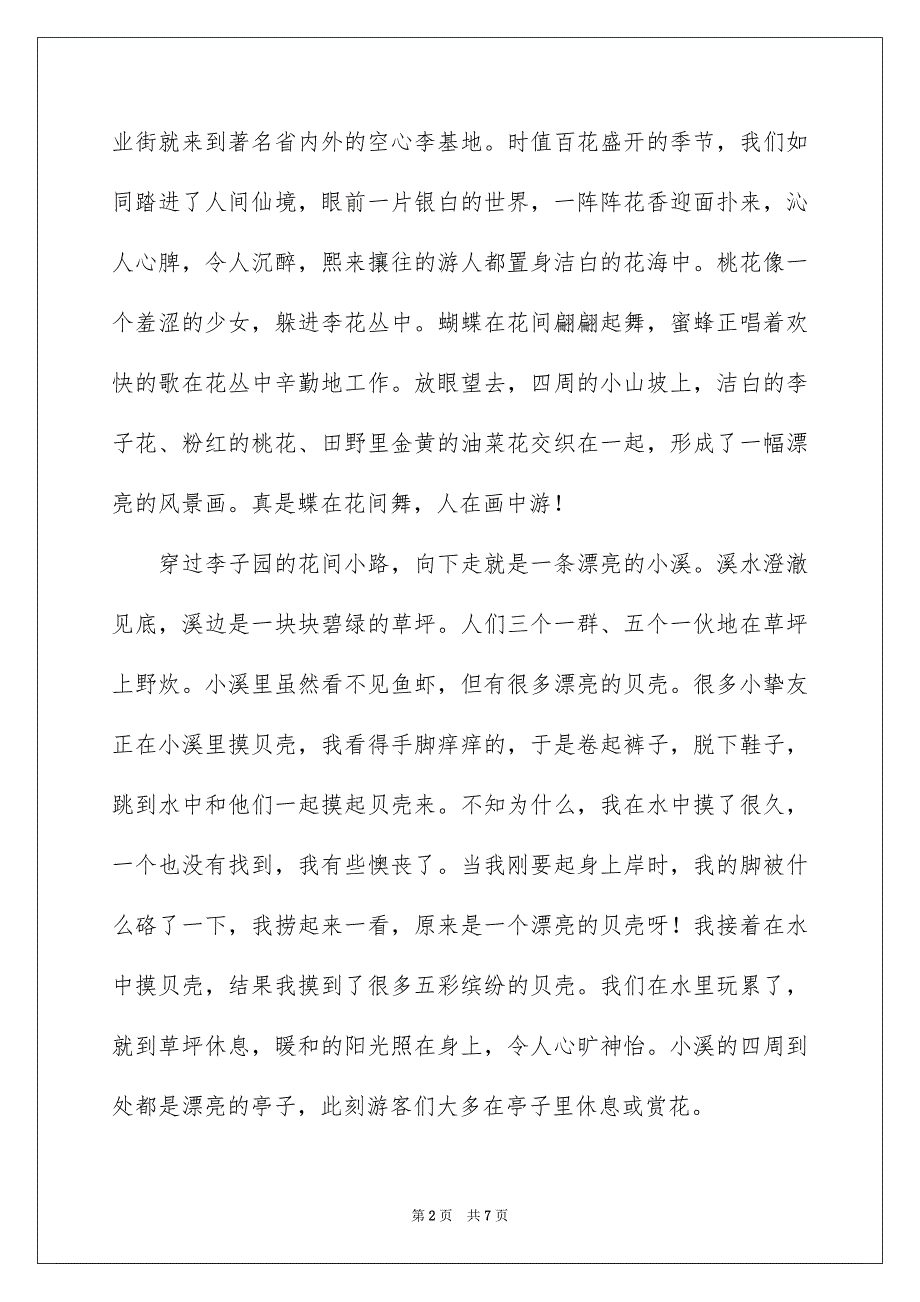 业街就来到著名省内外的空心李基地。时值百花盛开的季节，我们如
同踏进了人间仙境，眼前一片银白的世界，一阵阵花香迎面扑来，沁
人心脾，令人沉醉，熙来攘往的游人都置身洁白的花海中。桃花像一
个羞涩的少女，躲进李花丛中。蝴蝶在花间翩翩起舞，蜜蜂正唱着欢
快的歌在花丛中辛勤地工作。放眼望去，四周的小山坡上，洁白的李
子花、粉红的桃花、田野里金黄的油菜花交织在一起，形成了一幅漂
亮的风景画。真是蝶在花间舞，人在画中游！
穿过李子园的花间小路，向下走就是一条漂亮的小溪。溪水澄澈
见底，溪边是一块块碧绿的草坪。人们三个一群、五个一伙地在草坪
上野炊。小溪里虽然看不见鱼虾，但有很多漂亮的贝壳。很多小挚友
正在小溪里摸贝壳，我看得手脚痒痒的，于是卷起裤子，脱下鞋子，
跳到水中和他们一起摸起贝壳来。不知为什么，我在水中摸了很久，
一个也没有找到，我有些懊丧了。当我刚要起身上岸时，我的脚被什
么硌了一下，我捞起来一看，原来是一个漂亮的贝壳呀！我接着在水
中摸贝壳，结果我摸到了很多五彩缤纷的贝壳。我们在水里玩累了，
就到草坪休息，暖和的阳光照在身上，令人心旷神怡。小溪的四周到
处都是漂亮的亭子，此刻游客们大多在亭子里休息或赏花。
第 2 页 共 7 页